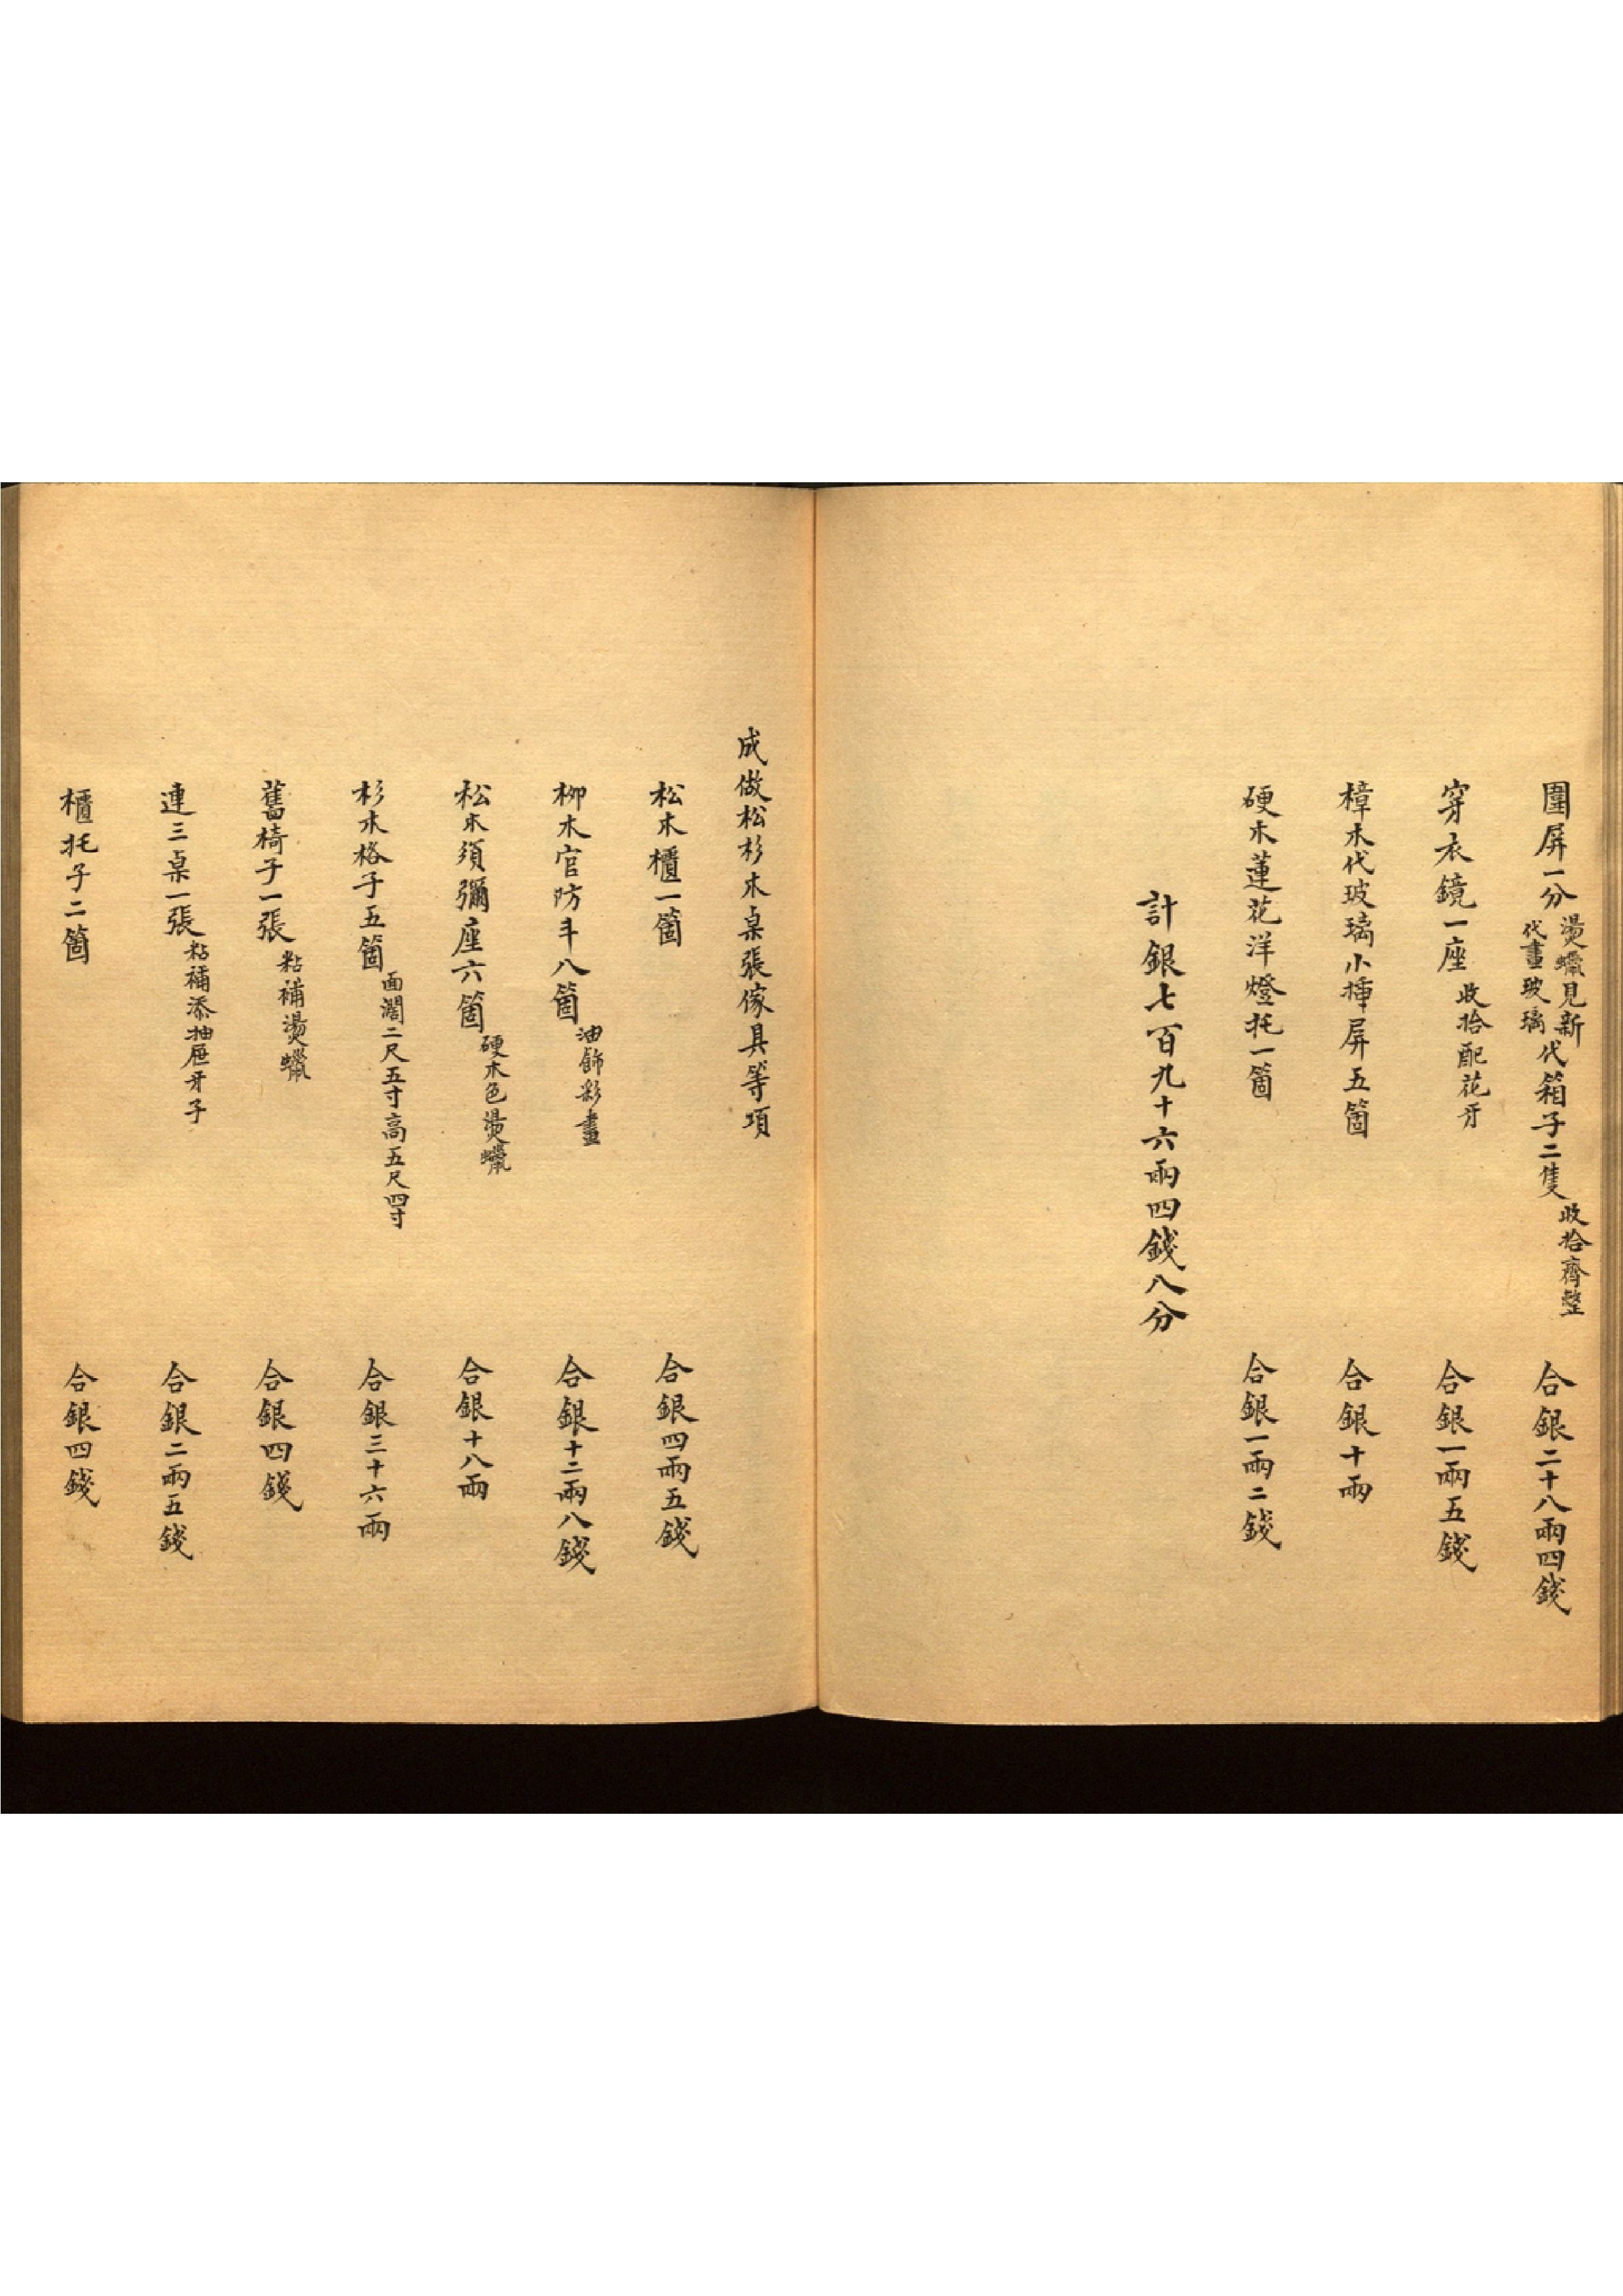 圍屏一分燙蠟見新代畫玻璃代箱子二隻收拾齊整 合銀二十八兩四錢
穿衣鏡一座收拾配花牙 合銀一兩五錢
樟木代玻璃小揷屏五箇 合銀十兩
硬木蓮花洋燈托一箇 合銀一兩二錢
計銀七百九十六兩四錢八分
成做松杉木桌張傢具等項
松木櫃一箇 合銀四兩五錢
柳木官防斗八箇油飾彩畫 合銀十二兩八錢
松木須彌座六箇硬木色燙蠟 合銀十八兩
杉木格子五箇面濶二尺五寸高五尺四寸 合銀三十六兩
舊椅子一張粘補燙蠟 合銀四錢
連三桌一張粘補添抽屜牙子 合銀二兩五錢
櫃托子二箇 合銀四錢